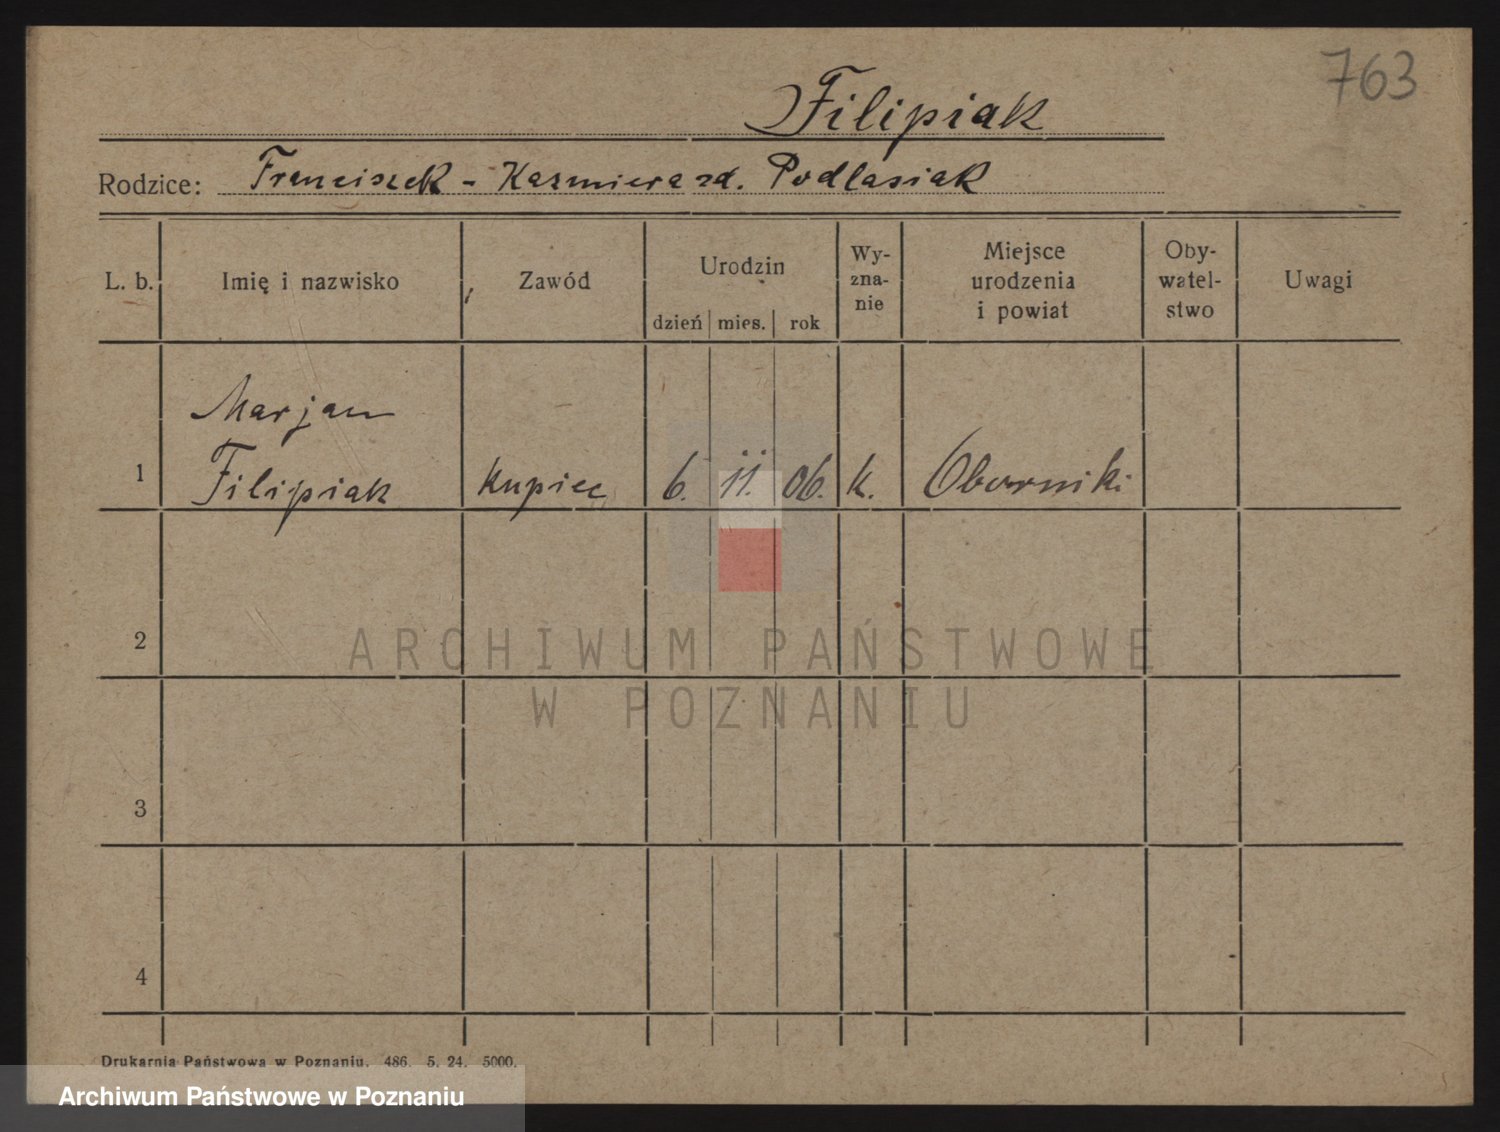 763
Filipiak
Rodzice: Franciszek - Kazmiera zd. Podlasiak
L. b. Imię i nazwisko Zawód Urodzin dzień mies. rok Wy-
zna-
nie Miejsce
urodzenia
i powiat Oby-
watel-
stwo Uwagi
Marjan
1 Filipiak kupiec 6. 11. 06. k. Oborniki
2
ARCHIWUM PAŃSTWOWE
W POZNANIU
3
4
Drukarnia Państwowa w Poznaniu. 486. 5. 24. 5000.
Archiwum Państwowe w Poznaniu